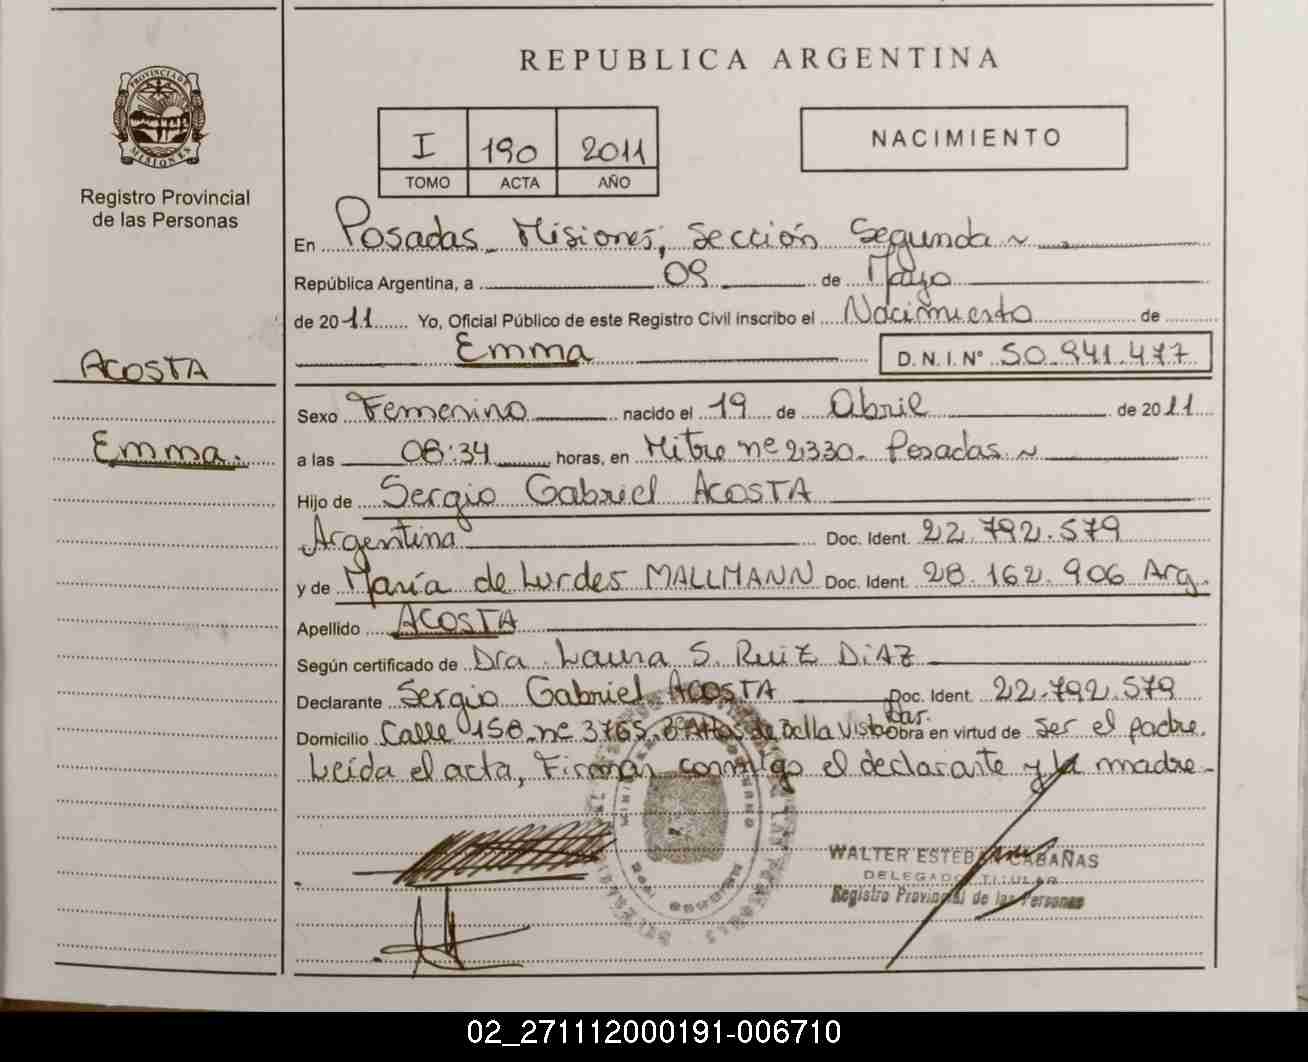 REPUBLICA ARGENTINA
PROVINCIA DE MISIONES
Registro Provincial
de las Personas
I 190 2011
TOMO ACTA AÑO
NACIMIENTO
En Posadas Misiones, Sección Segunda
República Argentina, a 09 de Mayo
de 2011 Yo, Oficial Público de este Registro Civil inscribo el Nacimiento de
Emma D.N.I.Nº 50.941.477
ACOSTA
Emma.
Sexo Femenino nacido el 19 de Abril de 2011
a las 08:34 horas, en Mitre nº 2330. Posadas
Hijo de Sergio Gabriel ACOSTA
Argentina Doc. Ident. 22.792.579
y de María de Lurdes MALLMANN Doc. Ident. 28.162.906 Arg.
Apellido ACOSTA
Según certificado de Dra. Laura S. RUIZ DIAZ
Declarante Sergio Gabriel ACOSTA Doc. Ident. 22.792.579
Domicilio Calle 158 nº 3765 Bº Altos de Bella Vista Gar. Obra en virtud de ser el padre.
Leída el acta, Firman conmigo el declarante y la madre-
WALTER ESTEBAN CABAÑAS
DELEGADO TITULAR
Registro Provincial de las Personas
02_271112000191-006710